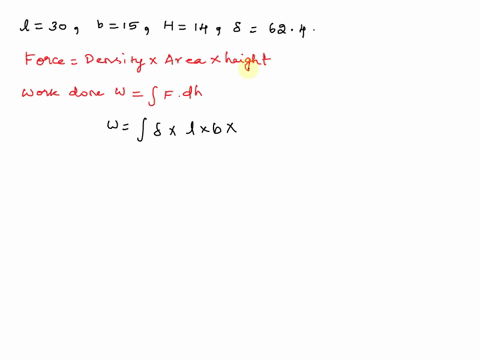 l = 30, b = 15, H = 14, δ = 62.4.
Force = Density × Area × height
Work done W = ∫ F.dh
W = ∫ δ × l × b ×